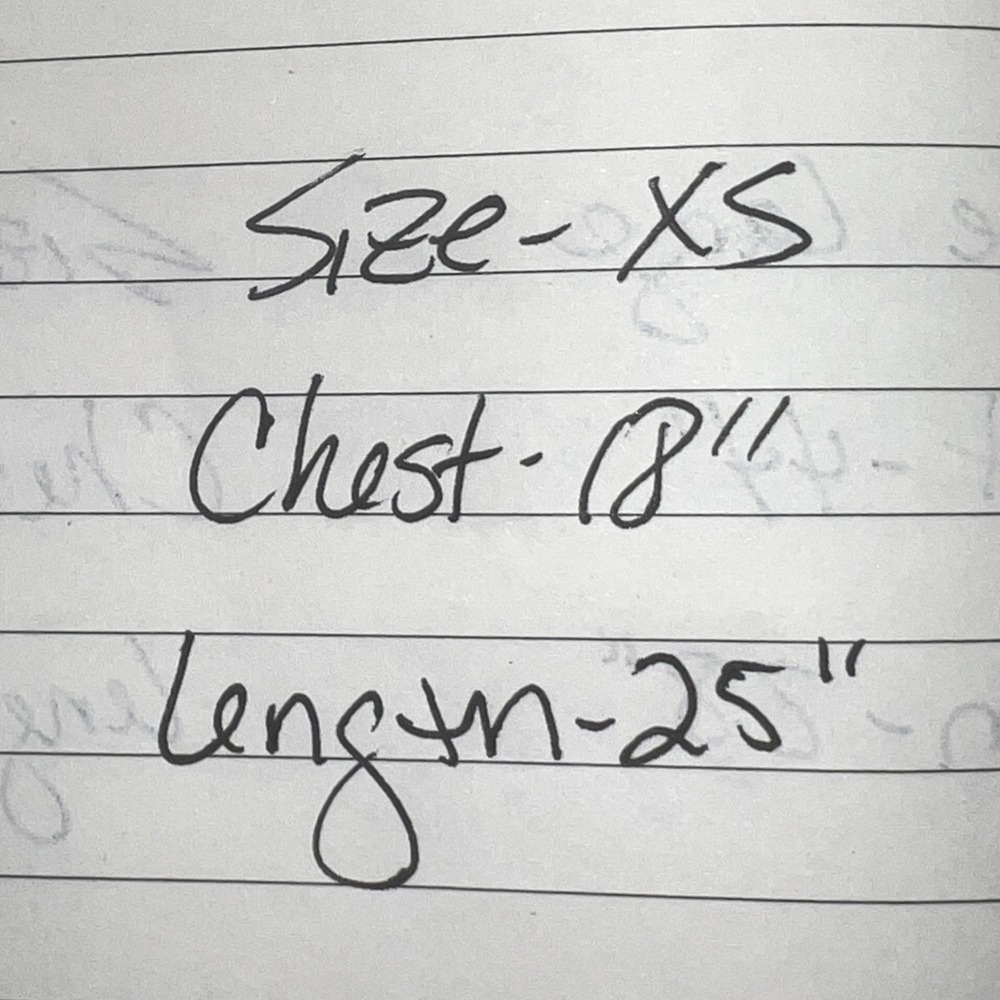 Size - XS
Chest - 18"
Length - 25"